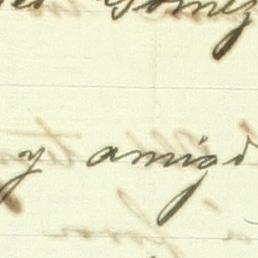 Gomez
y amigo